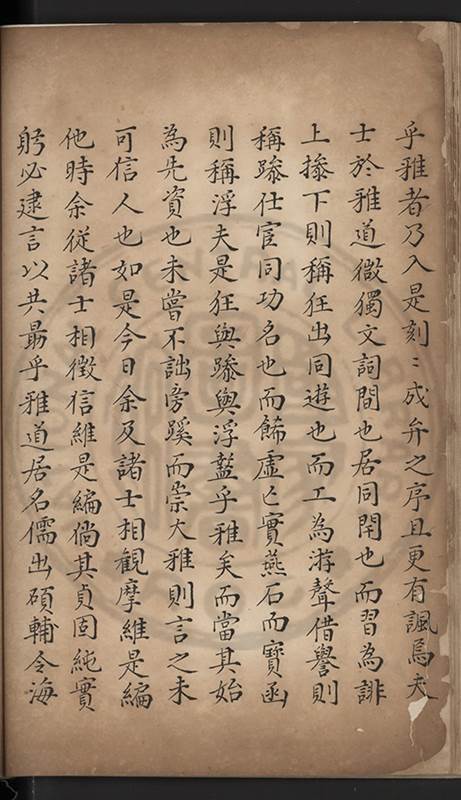 乎雅者乃入是刻〻成弁之序且更有諷焉夫
士於雅道微獨文詞間也居同閈也而習為誹
上搀下則稱狂出同遊也而工為游聲借譽則
稱躁仕宦同功名也而餙虛匕實燕石而寶函
則稱浮夫是狂與躁與浮蓝乎雅矣而當其始
為先資也未嘗不詘旁蹊而崇大雅則言之未
可信人也如是今日余及諸士相觀摩維是編
他時余從諸士相徵信維是編倘其貞固純實
躬必建言以共最乎雅道居名儒出碩輔令海